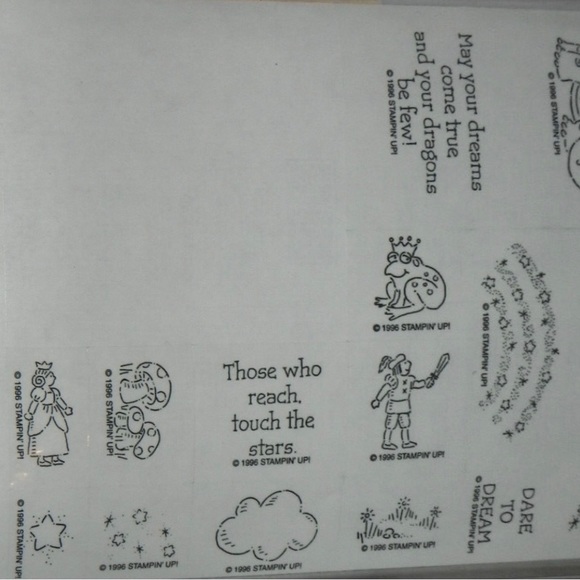 May your dreams
come true
and your dragons
be few!
© 1996 STAMPIN' UP!
© 1996 STAMPIN' UP!
© 1996 STAMPIN' UP!
© 1996 STAMPIN' UP!
Those who
reach,
touch the
stars.
© 1996 STAMPIN' UP!
© 1996 STAMPIN' UP!
© 1996 STAMPIN' UP!
© 1996 STAMPIN' UP!
DARE
TO
DREAM
© 1996 STAMPIN' UP!
© 1996 STAMPIN' UP!
© 1996 STAMPIN' UP!
© 1996 STAMPIN' UP!
© 1996 STAMPIN' UP!